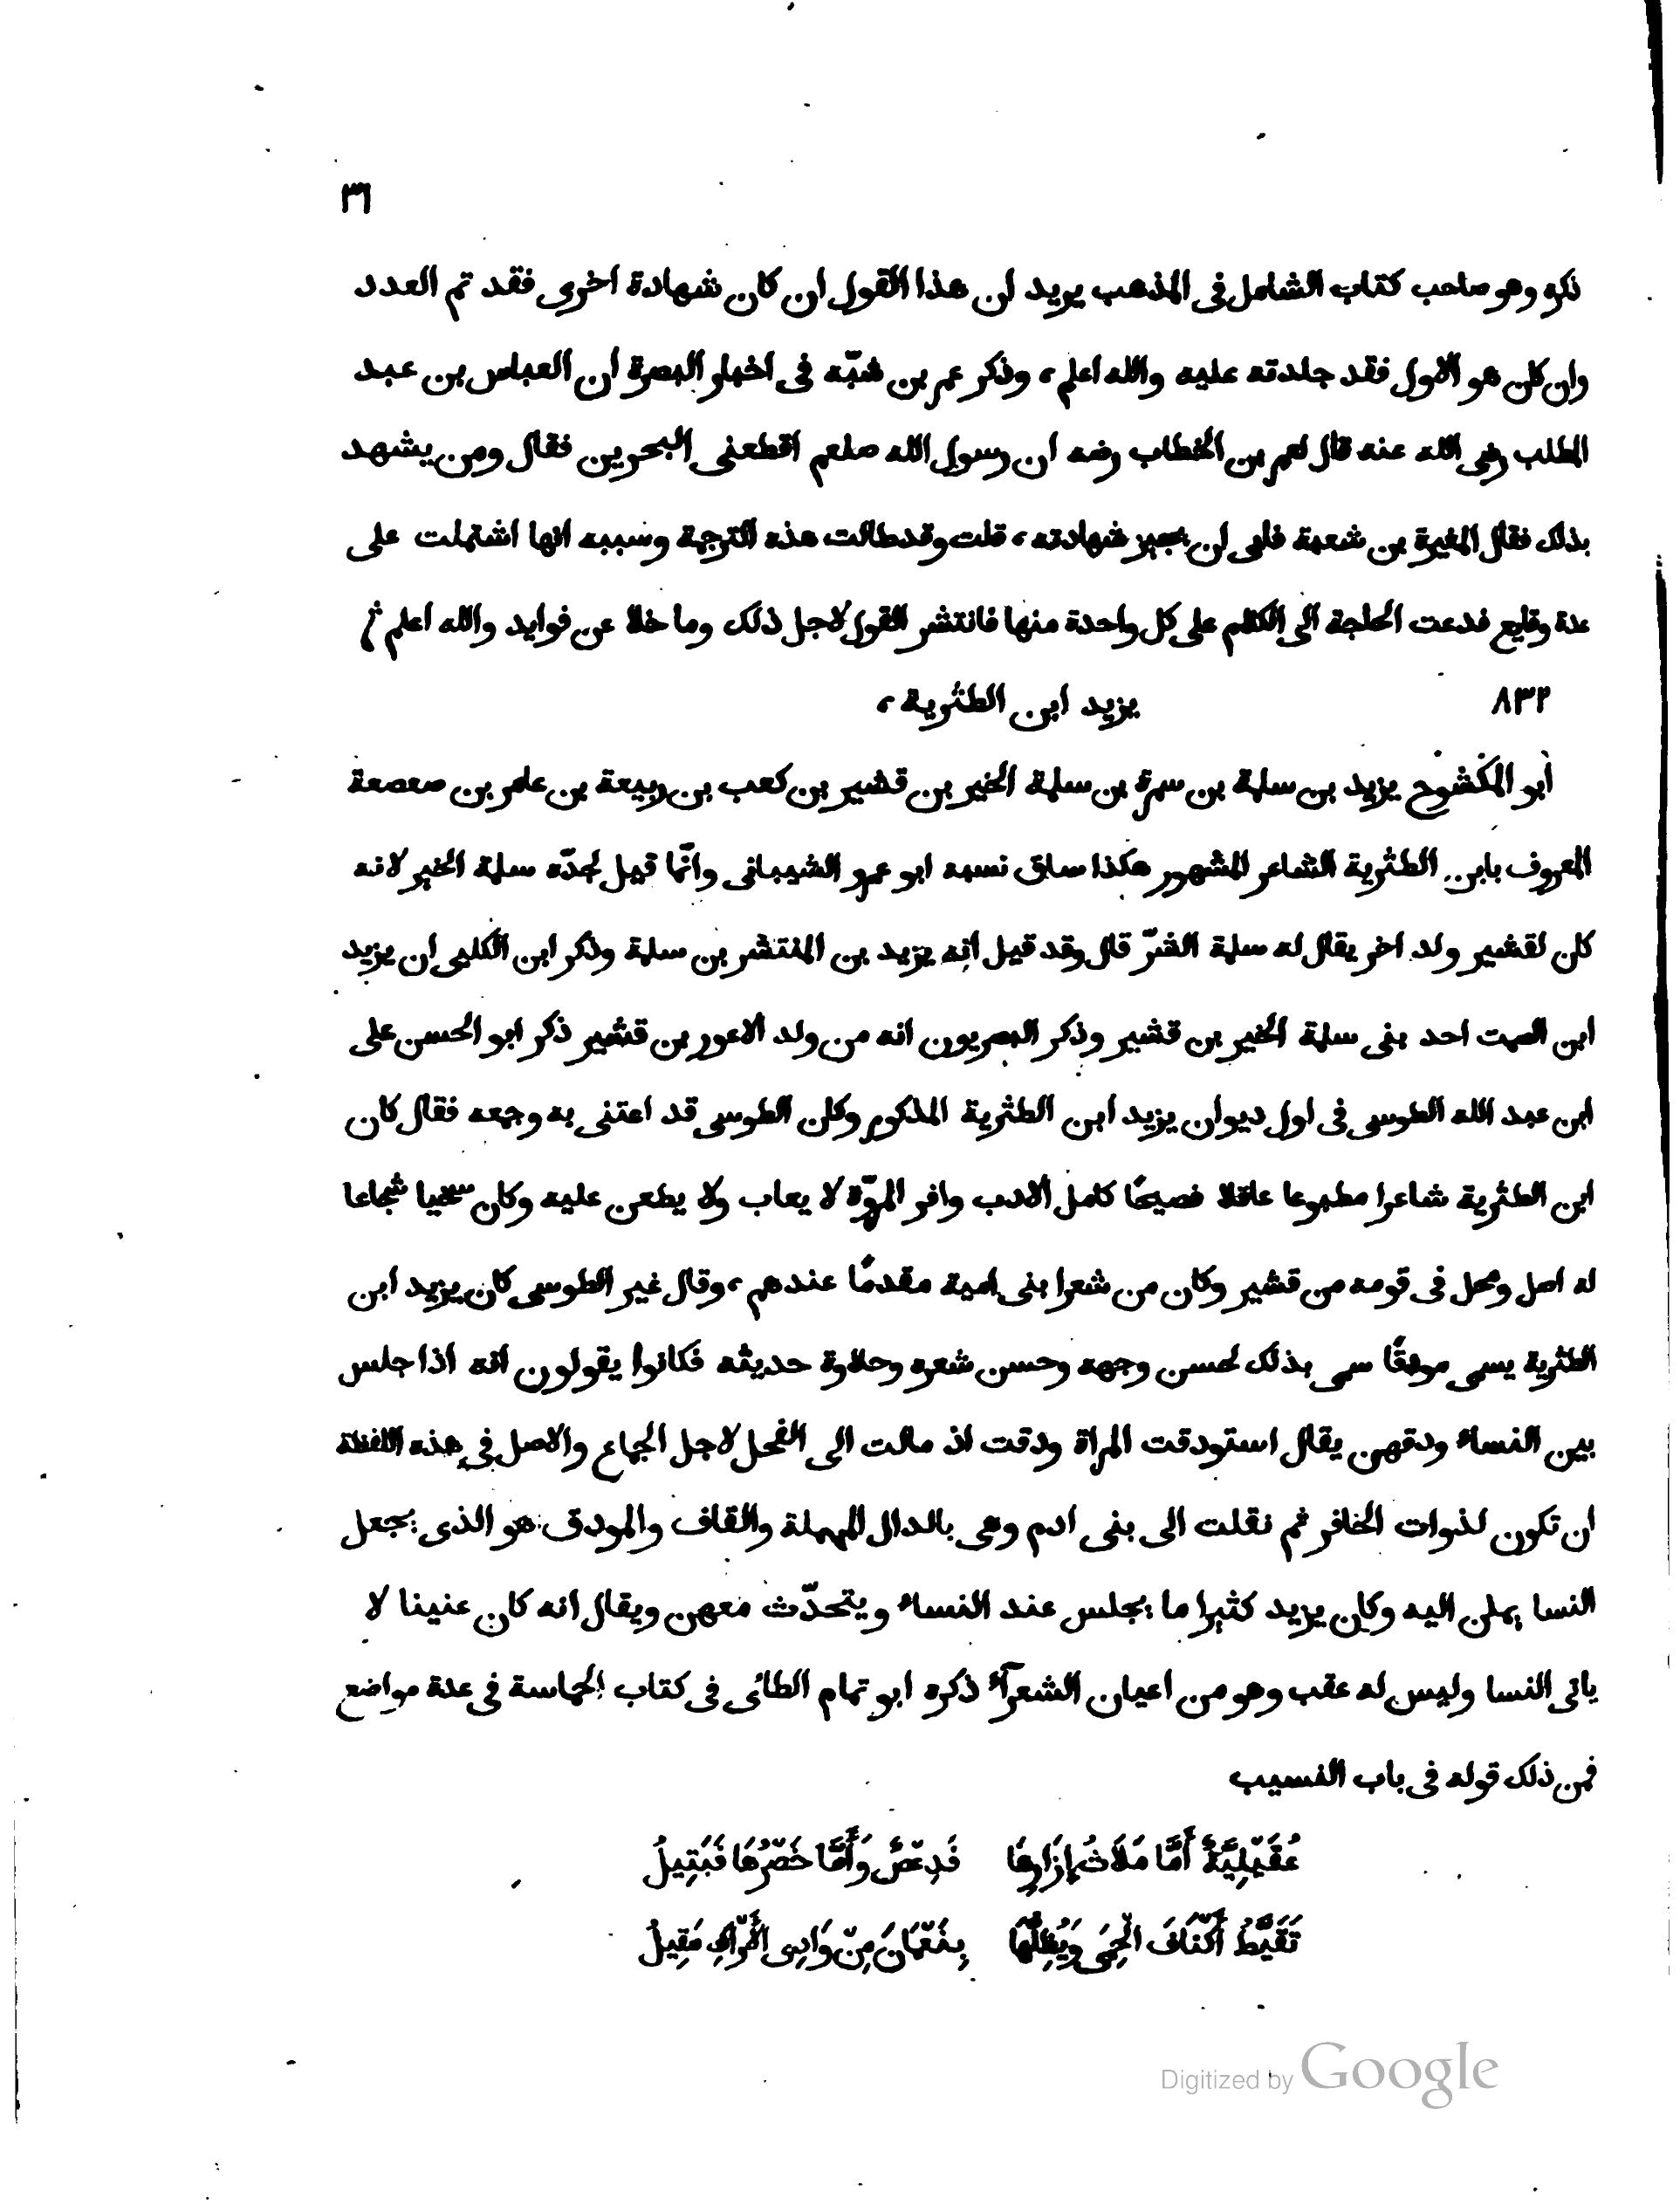 ٣٦
ذكره وهو صاحب كتاب الشامل فى المذهب يريد ان هذا القول ان كان شهادة اخرى فقد تم العدد
وان كان هو الاول فقد جلدته عليه والله اعلم، وذكر عمر بن شبّه فى اخبار البصرة ان العباس بن عبد
المطلب رضى الله عنه قال لعمر بن الخطاب رضه ان رسول الله صلعم اقطعنى البحرين فقال ومن يشهد
بذلك فقال المغيرة بن شعبة فابى ان يجيز شهادته، قلت وقد طالت هذه الترجمة وسببه انها اشتملت على
عدة وقايع فدعت الحاجة الى الكلام على كل واحدة منها فانتشر القول لاجل ذلك وما خلا عن فوايد والله اعلم
٨٣٢ يزيد ابن الطثرية،
أبو المَكْشُوح يزيد بن سلمة بن سمرة بن سلمة الخير بن قشير بن كعب بن ربيعة بن عامر بن صعصعة
المعروف بابن الطثرية الشاعر المشهور هكذا ساق نسبه ابو عمرو الشيبانى وانّما قيل لجدّه سلمة الخير لانه
كان لقشير ولد اخر يقال له سلمة الشرّ قال وقد قيل انه يزيد بن المنتشر بن سلمة وذكر ابن الكلبى ان يزيد
ابن الصمت احد بنى سلمة الخير بن قشير وذكر البصريون انه من ولد الاعور بن قشير ذكر ابو الحسن على
ابن عبد الله الطوسى فى اول ديوان يزيد ابن الطثرية المذكور وكان الطوسى قد اعتنى به وجمعه فقال كان
ابن الطثرية شاعرا مطبوعا عاقلا فصيحًا كامل الادب وافر المروّة لا يعاب ولا يطعن عليه وكان سخيا شجاعا
له اصل ومحل فى قومه من قشير وكان من شعرا بنى امية مقدمًا عندهم، وقال غير الطوسى كان يزيد ابن
الطثرية يسمى مودقًا سمى بذلك لحسن وجهه وحسن شعره وحلاوة حديثه فكانوا يقولون انه اذا جلس
بين النساء ودقهن يقال استودقت المراة ودقت اذ مالت الى الفحل لاجل الجماع والاصل فى هذه اللفظة
ان تكون لذوات الحافر ثم نقلت الى بنى ادم وهى بالدال المهملة والقاف والمودق هو الذى يجعل
النسا يملن اليه وكان يزيد كثيرا ما يجلس عند النساء ويتحدّث معهن ويقال انه كان عنينا لا
ياتى النسا وليس له عقب وهو من اعيان الشعرآء ذكره ابو تمام الطائى فى كتاب الحماسة فى عدة مواضع
فمن ذلك قوله فى باب النسيب
عُقَيْلِيَّةٌ أَمَّا مَلَاثُ إِزَارِهَا فَدِعْصٌ وَأَمَّا خَصْرُهَا فَبَتِيلُ
تَقَيَّظُ أَكْنَافَ الْحِمَى وَيُظِلُّهَا بِنَعْمَانَ مِنْ وَادِى الْأَرَاكِ مَقِيلُ
Digitized by Google